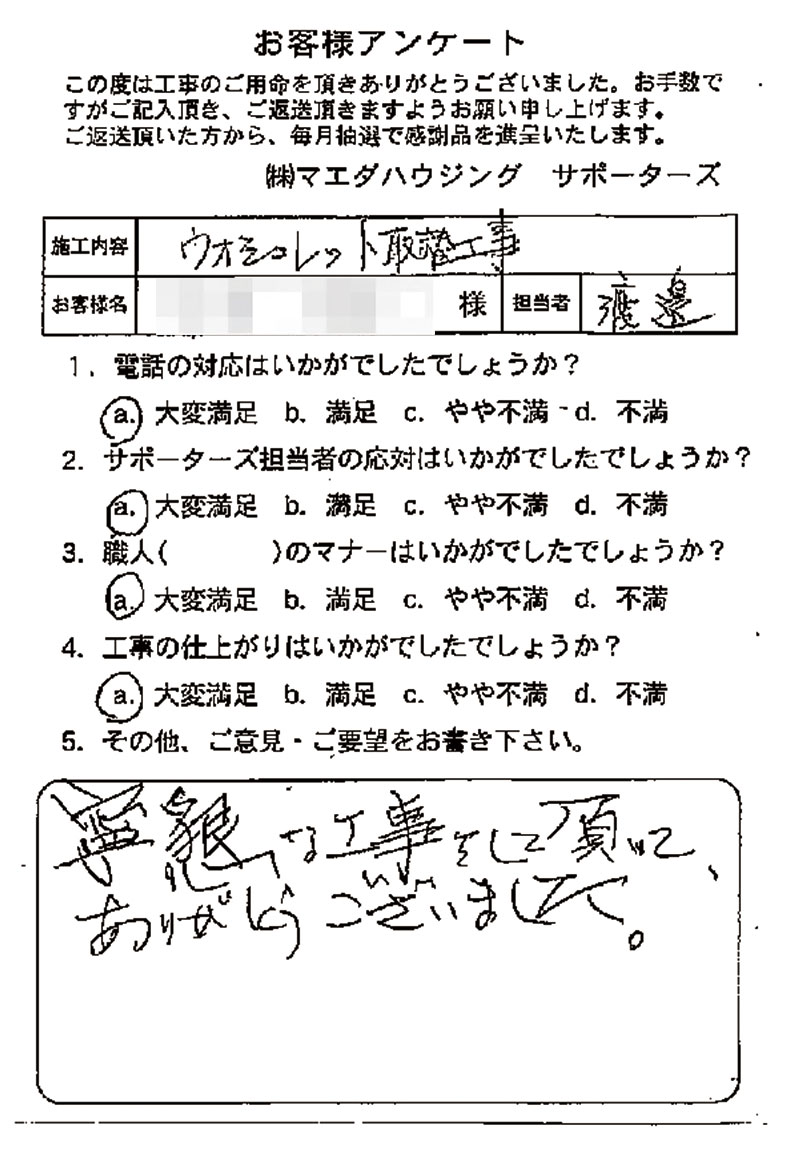 お客様アンケート
この度は工事のご用命を頂きありがとうございました。お手数で
すがご記入頂き、ご返送頂きますようお願い申し上げます。
ご返送頂いた方から、毎月抽選で感謝品を進呈いたします。
㈱マエダハウジング サポーターズ
施工内容 ウオシュレット取替工事
お客様名 様 担当者 渡邊
1. 電話の対応はいかがでしたでしょうか？
a. 大変満足 b. 満足 c. やや不満 d. 不満
2. サポーターズ担当者の応対はいかがでしたでしょうか？
a. 大変満足 b. 満足 c. やや不満 d. 不満
3. 職人( )のマナーはいかがでしたでしょうか？
a. 大変満足 b. 満足 c. やや不満 d. 不満
4. 工事の仕上がりはいかがでしたでしょうか？
a. 大変満足 b. 満足 c. やや不満 d. 不満
5. その他、ご意見・ご要望をお書き下さい。
な工事をして頂いて、
ありがとうございました。